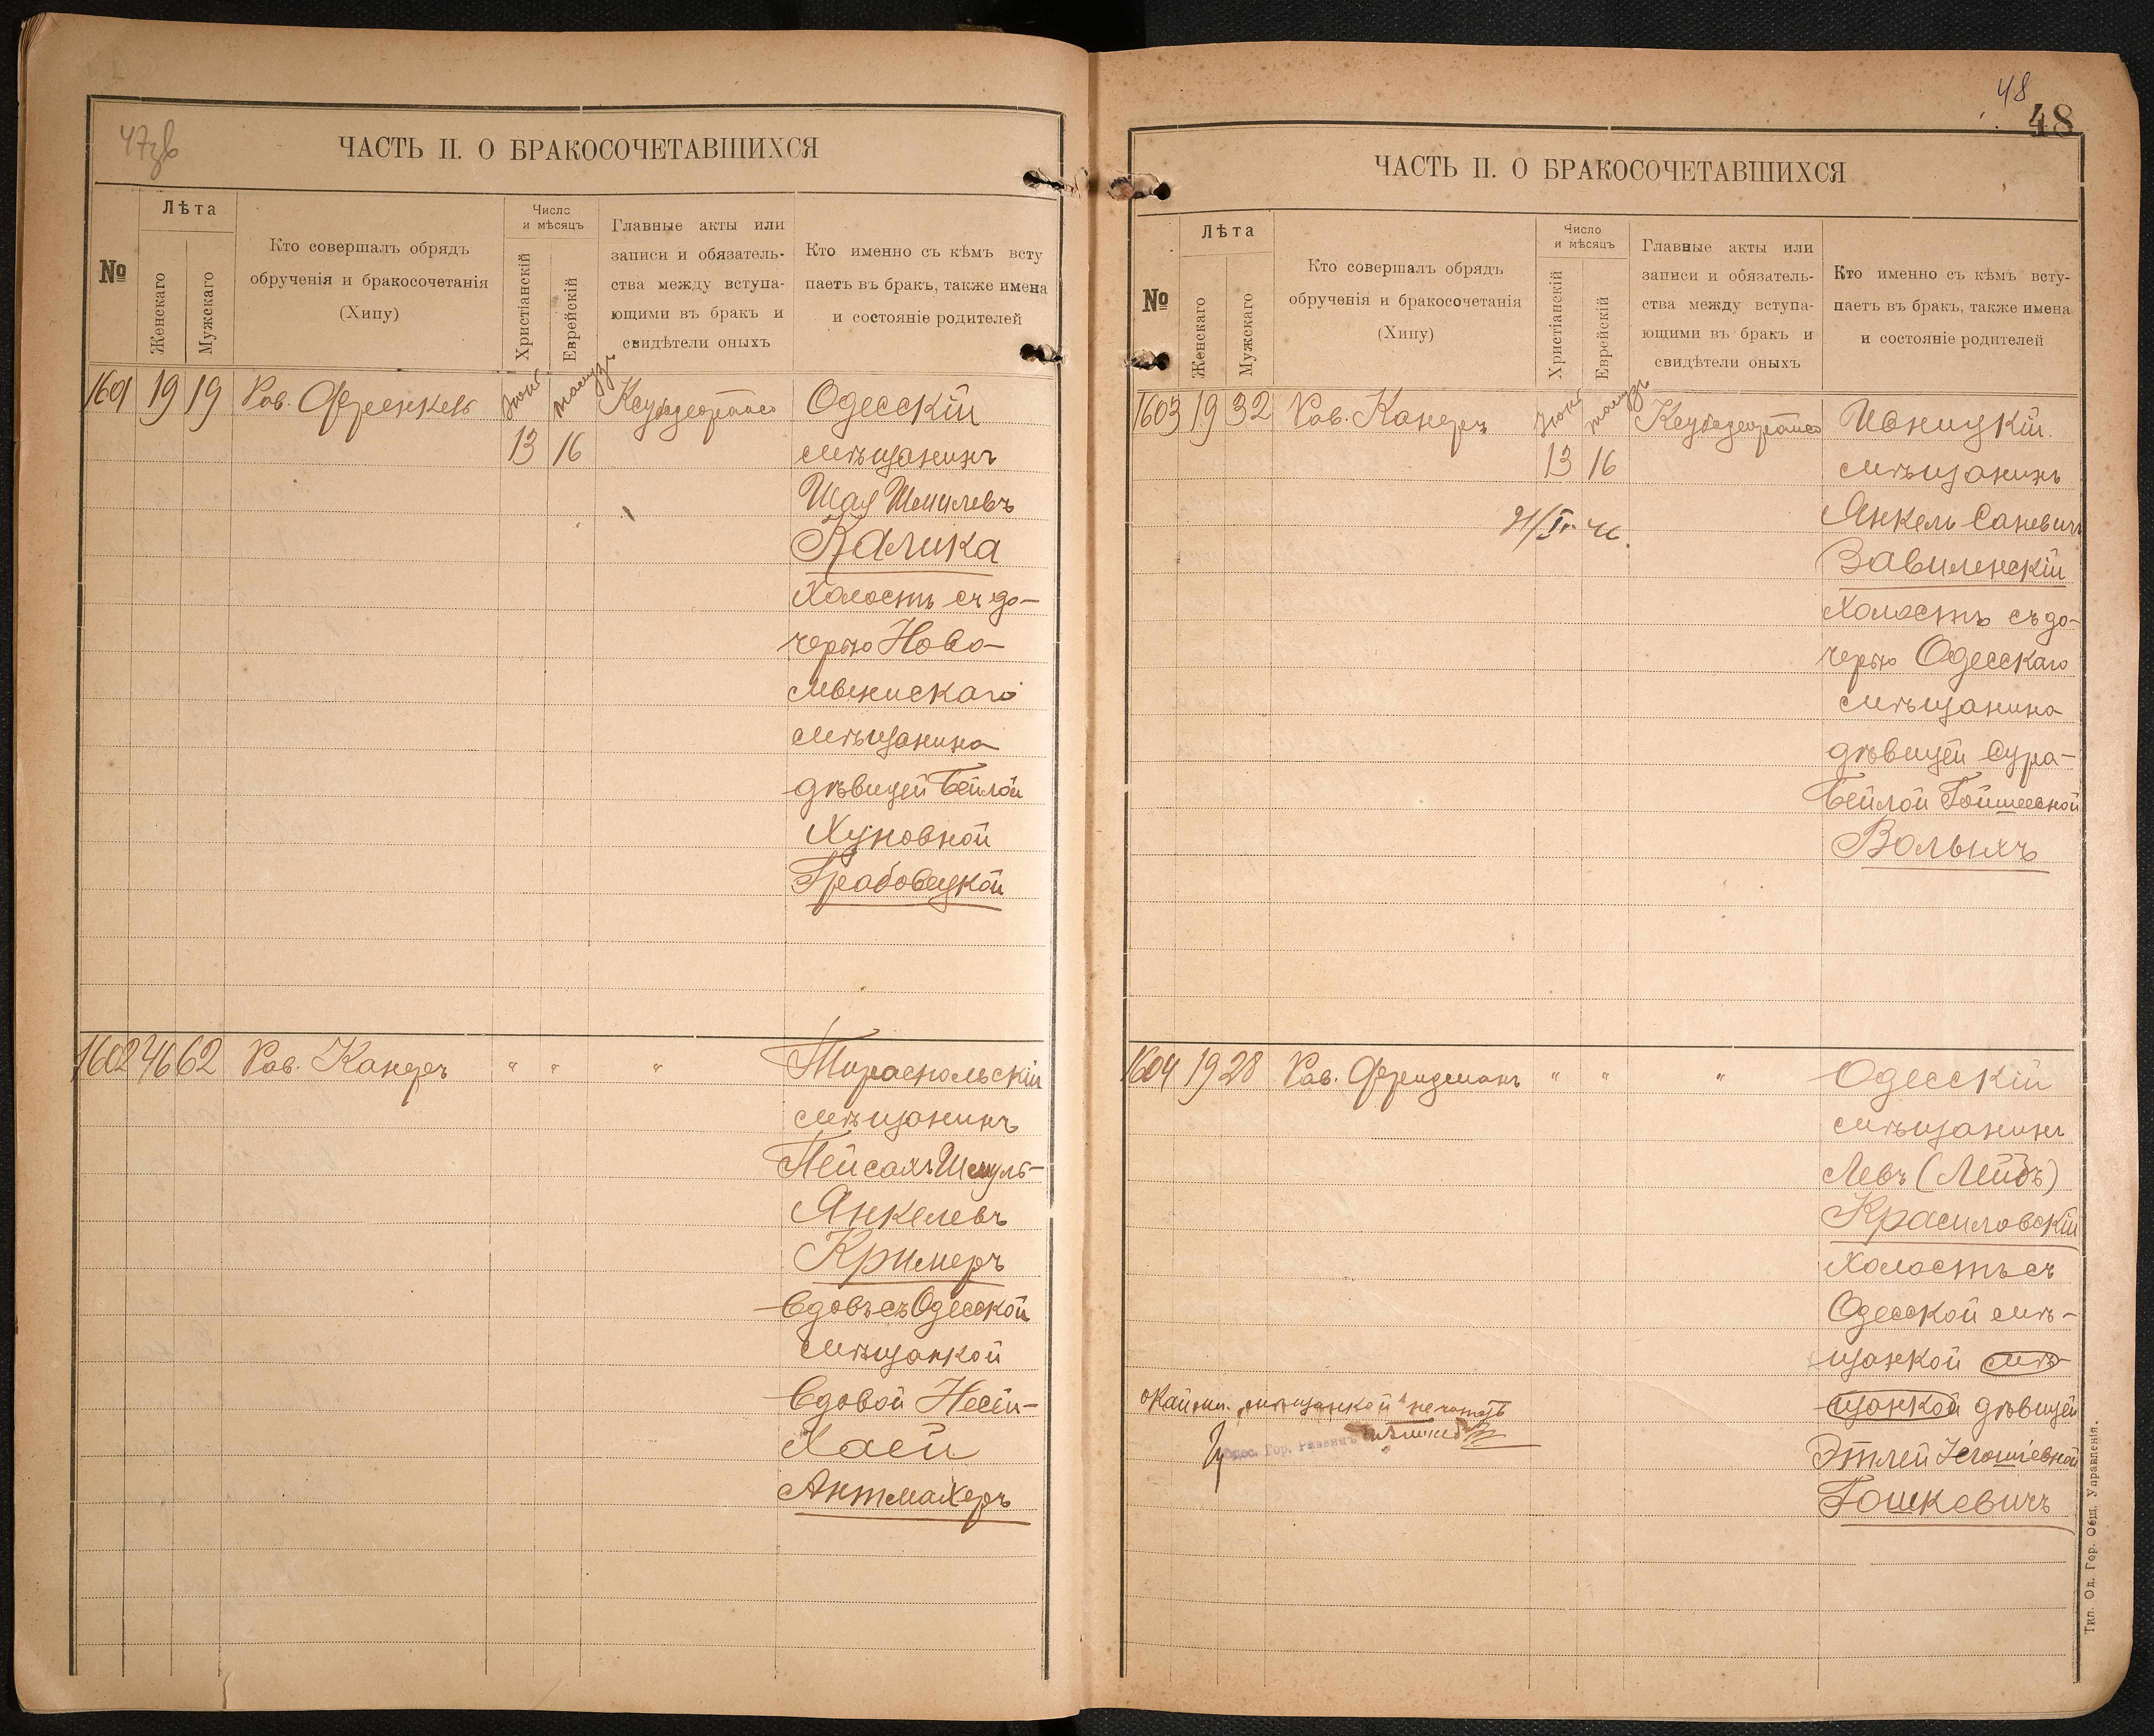 47зв
ЧАСТЬ II. О БРАКОСОЧЕТАВШИХСЯ
№
Лѣта
Женскаго
Мужскаго
Кто совершалъ обрядъ
обрученія и бракосочетанія
(Хипу)
Число
и мѣсяцъ
Христіанскій
Еврейскій
Главные акты или
записи и обязатель-
ства между вступа-
ющими въ бракъ и
свидѣтели оныхъ
Кто именно съ кѣмъ всту
паетъ въ бракъ, также имена
и состояніе родителей
1601 19 19 Рав. Френкель
Одесскій
13 16 мѣщанинъ
Шая Шмилевъ
Калика
Холостъ съ до-
черью Ново-
мѣщанина
дѣвицей Бейлой
Хуновной
Грабовецкой
1602 46 62 Рав. Канеръ " " " Тираспольскій
мѣщанинъ
Пейсахъ Шмуль-
Янкелевъ
Кримеръ
Вдовъ съ Одесской
мѣщанкой
Вдовой Несей-
Хаей
Антмахеръ
48
48
ЧАСТЬ II. О БРАКОСОЧЕТАВШИХСЯ
№
Лѣта
Женскаго
Мужскаго
Кто совершалъ обрядъ
обрученія и бракосочетанія
(Хипу)
Число
и мѣсяцъ
Христіанскій
Еврейскій
Главные акты или
записи и обязатель-
ства между вступа-
ющими въ бракъ и
свидѣтели оныхъ
Кто именно съ кѣмъ всту-
паетъ въ бракъ, также имена
и состояніе родителей
1603 19 32 Рав. Канеръ
Ивницкій
13 16 мѣщанинъ
Янкель Саневичъ
Завиленскій
Холостъ съ до-
черью Одесскаго
мѣщанина
дѣвицей Сура-
Бейлой Гойшеевной
Вольихъ
1604 19 28 Рав. Фридманъ " " " Одесскій
мѣщанинъ
Левъ (Лейбъ)
Красиловскій
Холостъ съ
Одесской мѣ-
щанкой мѣ-
щанкой дѣвицей
Этлей
Гошкевичъ
"мѣщанкой" не читать
Одес. Гор. Раввинъ
Тип. Од. Гор. Общ. Управленія.